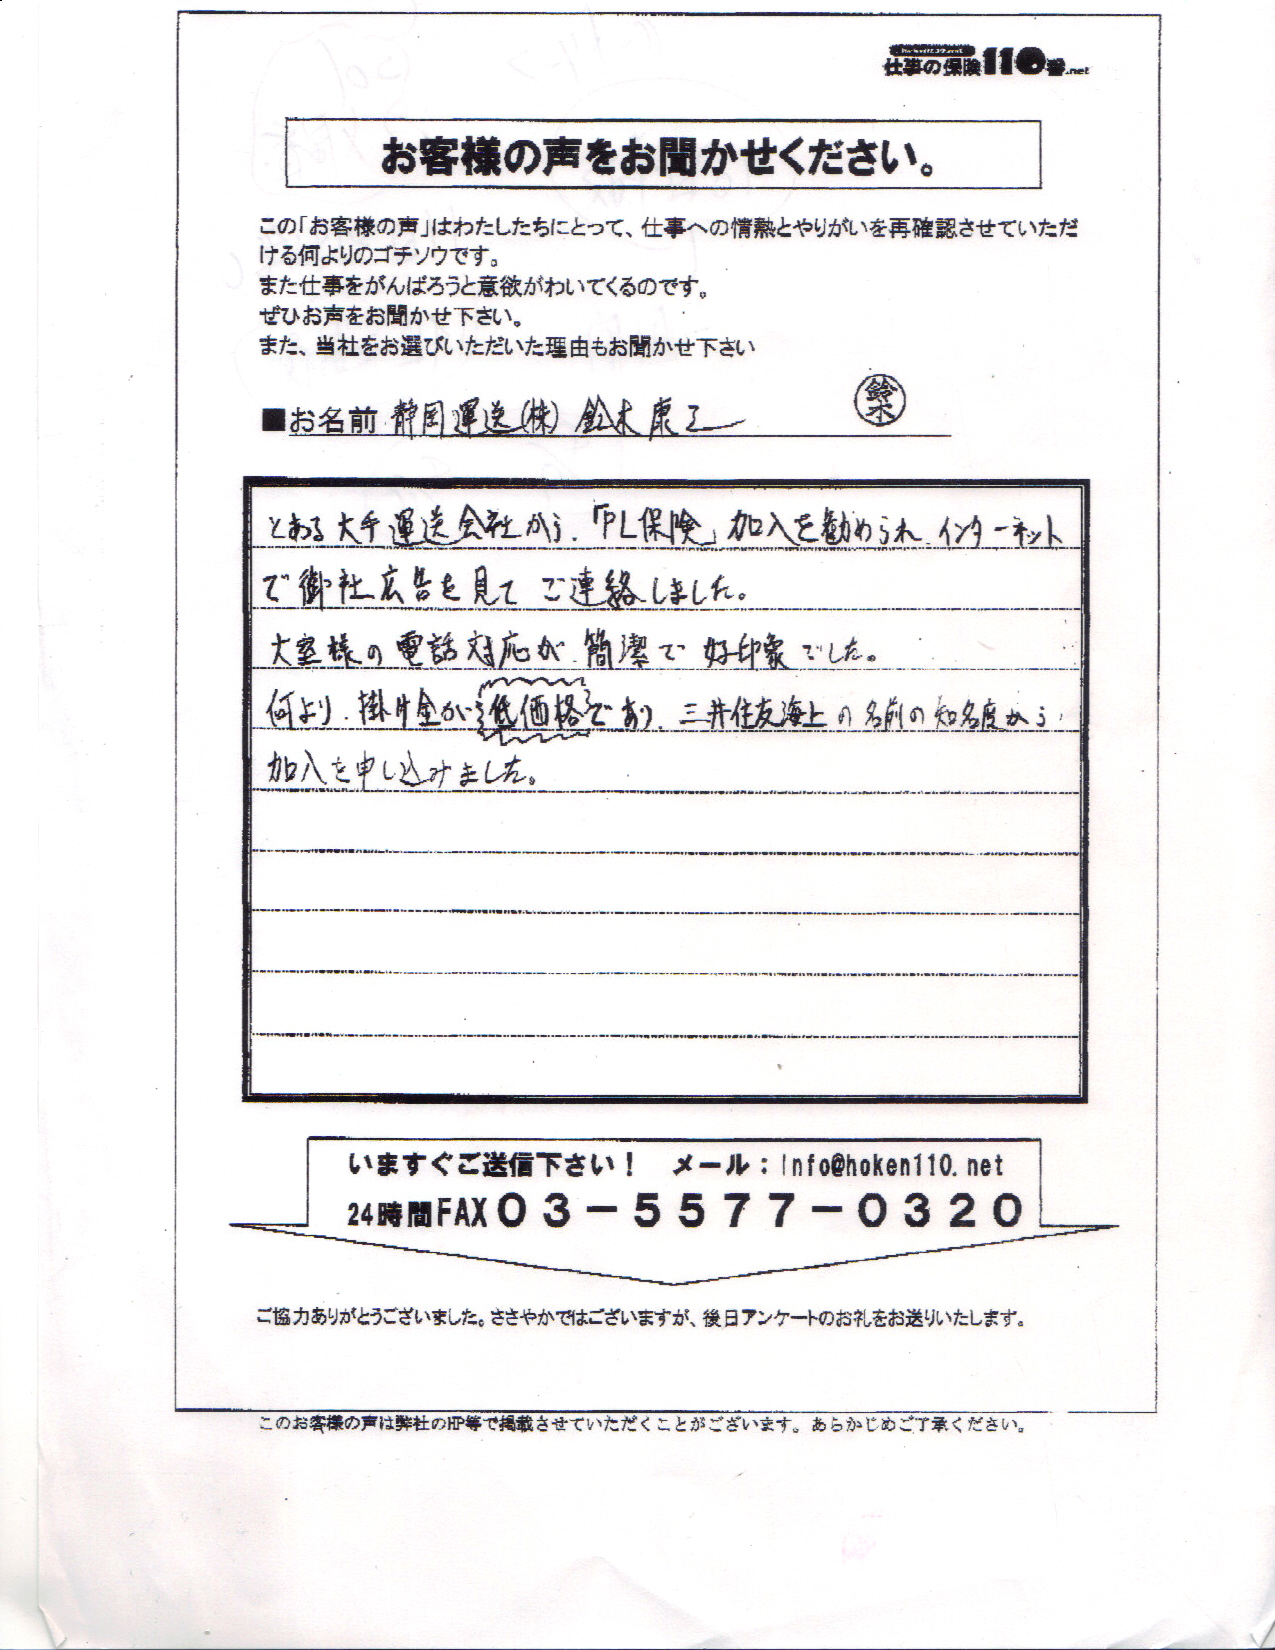 仕事の保険110番.net
お客様の声をお聞かせください。
この「お客様の声」はわたしたちにとって、仕事への情熱とやりがいを再確認させていただ
ける何よりのゴチソウです。
また仕事をがんばろうと意欲がわいてくるのです。
ぜひお声をお聞かせ下さい。
また、当社をお選びいただいた理由もお聞かせ下さい
■お名前 静岡運送(株) 鈴木康
鈴木
とある大手運送会社から、「PL保険」加入を勧められ、インターネット
で御社広告を見て ご連絡しました。
大室様の電話対応が、簡潔で好印象でした。
何より、掛け金が低価格であり、三井住友海上の名前の知名度から、
加入を申し込みました。
いますぐご送信下さい! メール:info@hoken110.net
24時間FAX03-5577-0320
ご協力ありがとうございました。ささやかではございますが、後日アンケートのお礼をお送りいたします。
このお客様の声は弊社のHP等で掲載させていただくことがございます。あらかじめご了承ください。